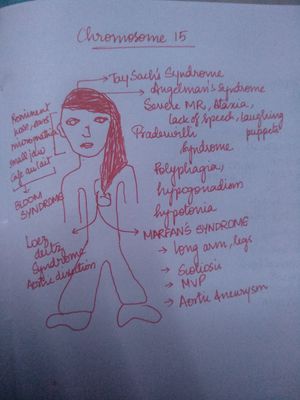 Chromosome 15
Tay Sach's Syndrome
Angelman's Syndrome
Severe MR, Ataxia,
lack of speech, laughing
puppets
Praderwilli
Syndrome
Polyphagia,
hypogonadism
hypotonia
MARFAN'S SYNDROME
→ long arm, legs
→ Scoliosis
→ MVP
→ Aortic Aneurysm
Prominent
nose, ears
micrognathia
small jaw
Cafe au lait
BLOOM
SYNDROME
Loez
deitz
Syndrome
Aortic disection